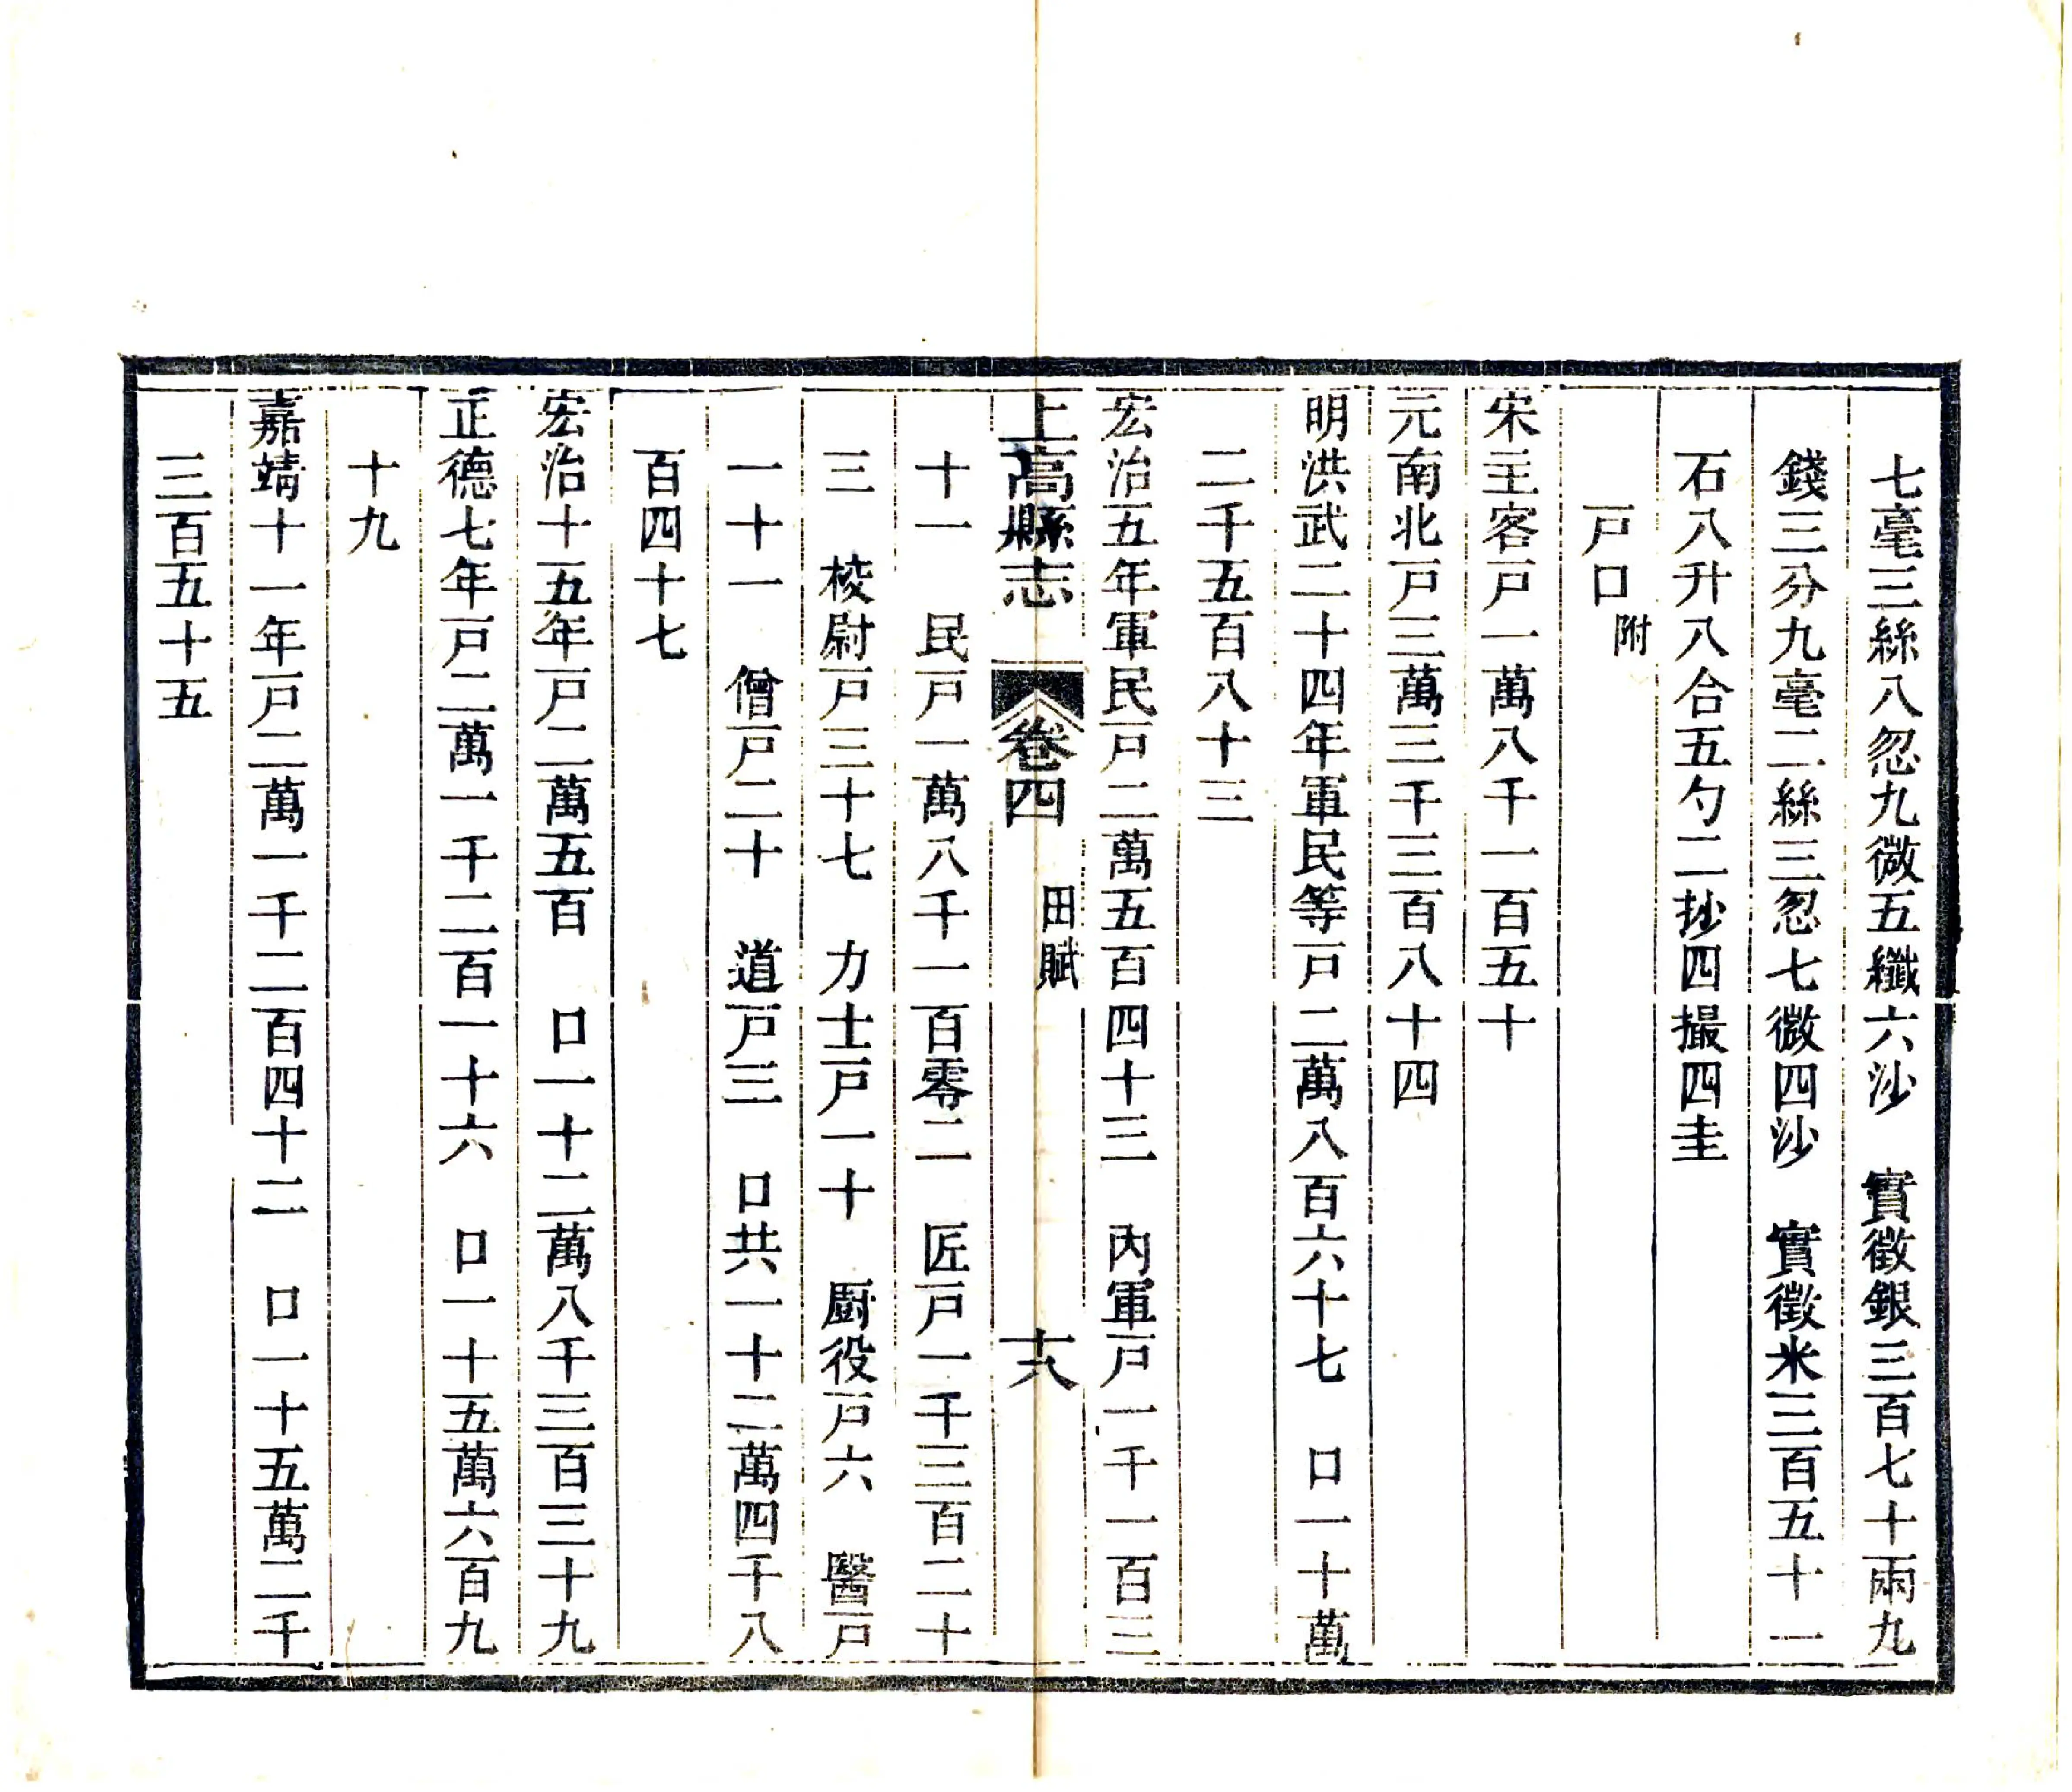 七毫三絲八忽九微五纖六沙　實徵銀三百七十兩九
錢三分九毫二絲三忽七微四沙　實徵米三百五十一
石八升八合五勺二抄四撮四圭
戸口附
宋主客戸一萬八千一百五十
元南北戸三萬三千三百八十四
明洪武二十四年軍民等戸二萬八百六十七　口一十萬
二千五百八十三
宏治五年軍民戸二萬五百四十三　內軍戸一千一百三
上高縣志　卷四　田賦　十八
十一　民戸一萬八千一百零二　匠戸一千三百二十
三　校尉戸三十七　力士戸一十　厨役戸六　醫戸
一十一　僧戸二十　道戸三　口共一十二萬四千八
百四十七
宏治十五年戸二萬五百　口一十二萬八千三百三十九
正德七年戸二萬一千二百一十六　口一十五萬六百九
十九
嘉靖十一年戸二萬一千二百四十二　口一十五萬二千
三百五十五